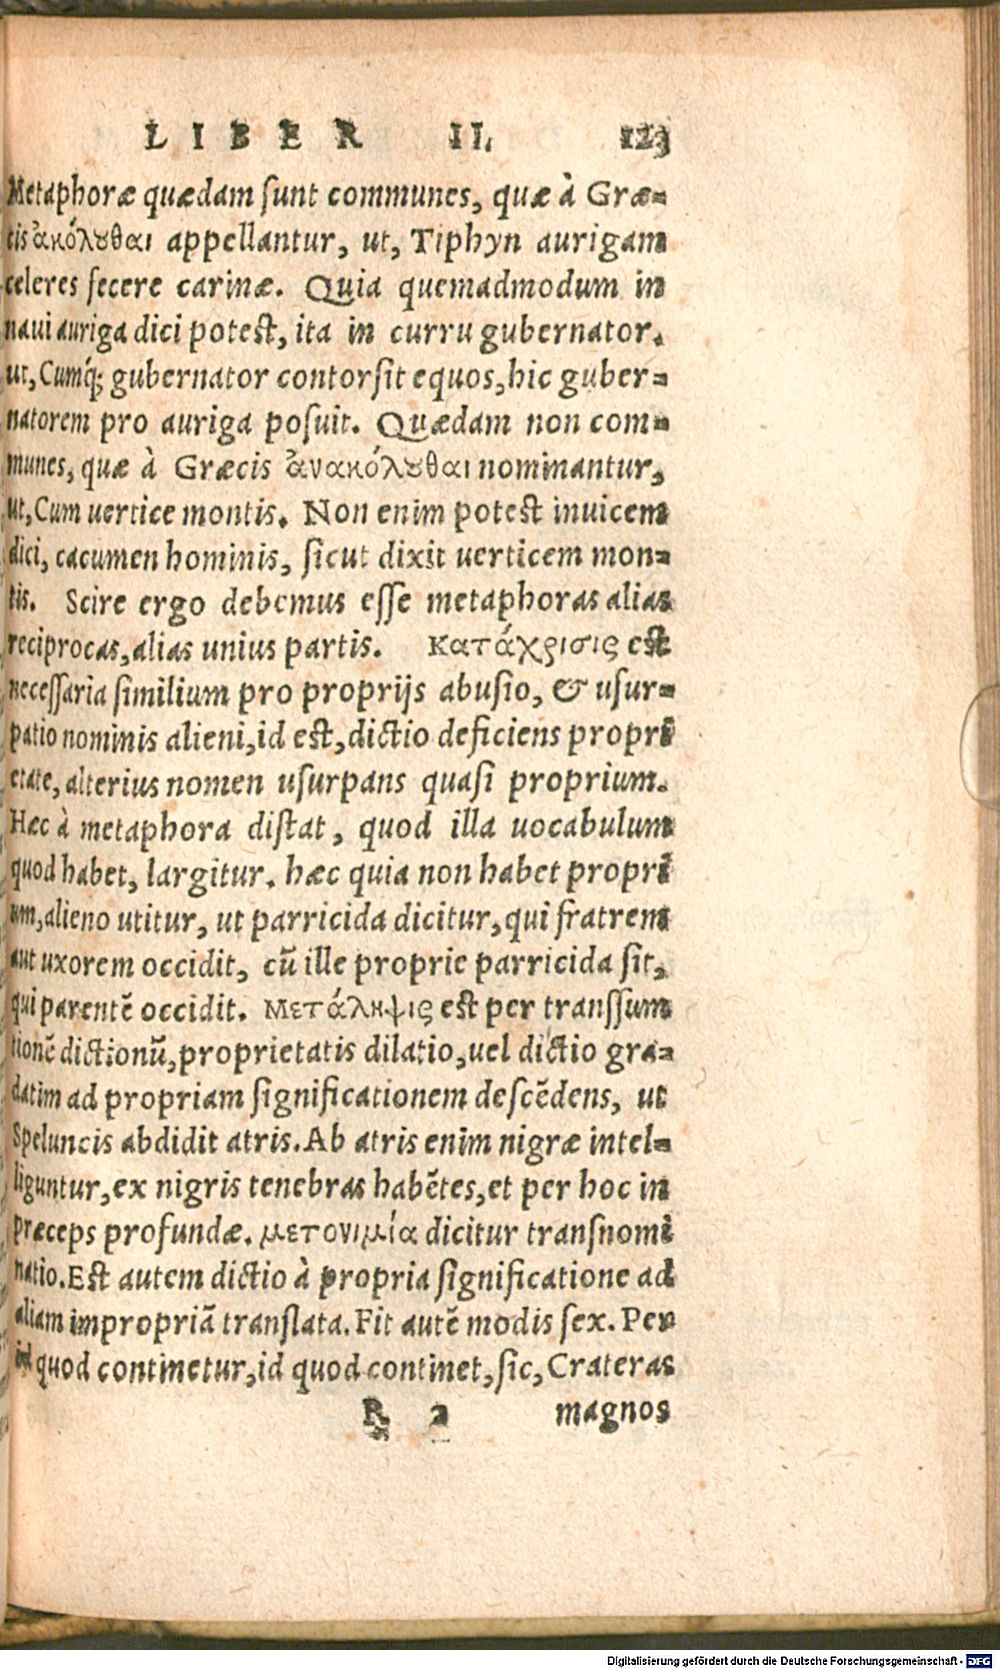 LIBER II. 123
Metaphoræ quædam sunt communes, quæ à Græ-
cis ἀκόλουθαι appellantur, ut, Tiphyn aurigam
celeres fecere carinæ. Quia quemadmodum in
naui auriga dici potest, ita in curru gubernator.
ut, Cumq́; gubernator contorsit equos, hic guber-
natorem pro auriga posuit. Quædam non com-
munes, quæ à Græcis ἀνακόλουθαι nominantur,
ut, Cum uertice montis. Non enim potest inuicem
dici, cacumen hominis, sicut dixit uerticem mon-
tis. Scire ergo debemus esse metaphoras alias
reciprocas, alias unius partis. Κατάχρισις est
necessaria similium pro proprijs abusio, & usur-
patio nominis alieni, id est, dictio deficiens propri
etate, alterius nomen usurpans quasi proprium.
Hæc à metaphora distat, quod illa uocabulum
quod habet, largitur. hæc quia non habet propri
um, alieno utitur, ut parricida dicitur, qui fratrem
aut uxorem occidit, cũ ille proprie parricida sit,
qui parentẽ occidit. Μετάληψις est per transsum
tionẽ dictionũ, proprietatis dilatio, uel dictio gra-
datim ad propriam significationem descẽdens, ut
Speluncis abdidit atris. Ab atris enim nigræ intel-
liguntur, ex nigris tenebras habẽtes, et per hoc in
præceps profundæ. μετονιμία dicitur transnomi
natio. Est autem dictio à propria significatione ad
aliam impropriã translata. Fit autẽ modis sex. Per
id quod continetur, id quod continet, sic, Crateras
R 2 magnos
Digitalisierung gefördert durch die Deutsche Forschungsgemeinschaft - DFG